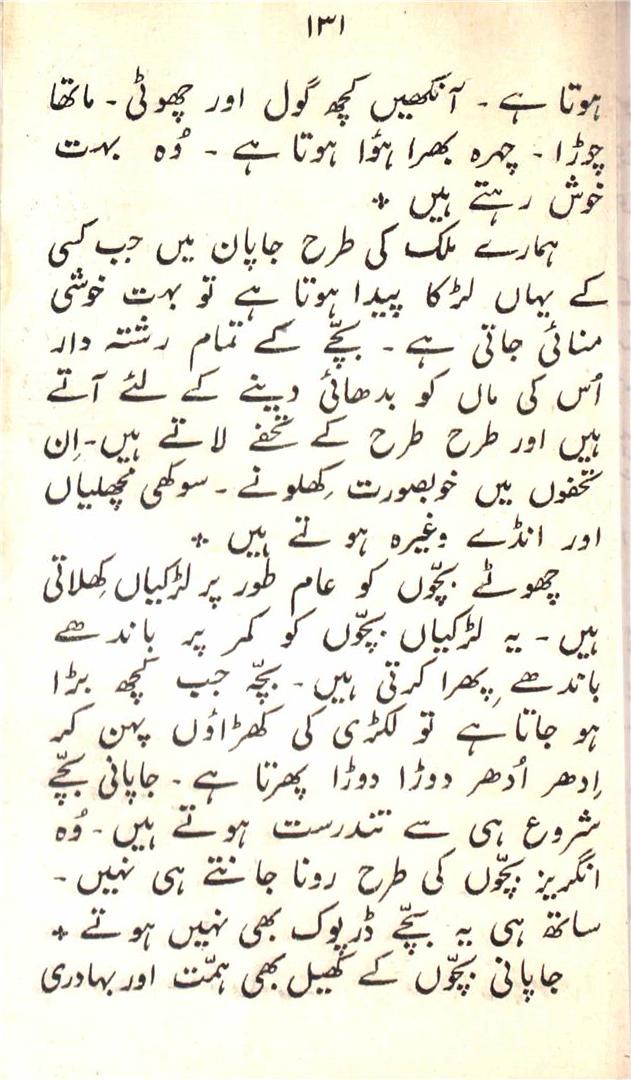 ۱۳۱
ہوتا ہے ۔ آنکھیں کچھ گول اور چھوٹی ۔ ماتھا
چوڑا ۔ چہرہ بھرا ہؤا ہوتا ہے ۔ وُہ بہت
خوش رہتے ہیں *
ہمارے ملک کی طرح جاپان میں جب کسی
کے یہاں لڑکا پیدا ہوتا ہے تو بہت خوشی
منائی جاتی ہے ۔ بچّے کے تمام رشتہ دار
اُس کی ماں کو بدھائی دینے کے لئے آتے
ہیں اور طرح طرح کے تحفے لاتے ہیں ۔ اِن
تحفوں میں خوبصورت کِھلونے ۔ سوکھی مچھلیاں
اور انڈے وغیرہ ہوتے ہیں *
چھوٹے بچّوں کو عام طور پر لڑکیاں کِھلاتی
ہیں ۔ یہ لڑکیاں بچّوں کو کمر پر باندھے
باندھے پِھرا کرتی ہیں ۔ بچّہ جب کچھ بڑا
ہو جاتا ہے تو لکڑی کی کھڑاؤں پہن کر
اِدھر اُدھر دوڑا دوڑا پھرتا ہے ۔ جاپانی بچّے
شروع ہی سے تندرست ہوتے ہیں ۔ وُہ
انگریز بچّوں کی طرح رونا جانتے ہی نہیں ۔
ساتھ ہی یہ بچّے ڈرپوک بھی نہیں ہوتے *
جاپانی بچّوں کے کھیل بھی ہمّت اور بہادری